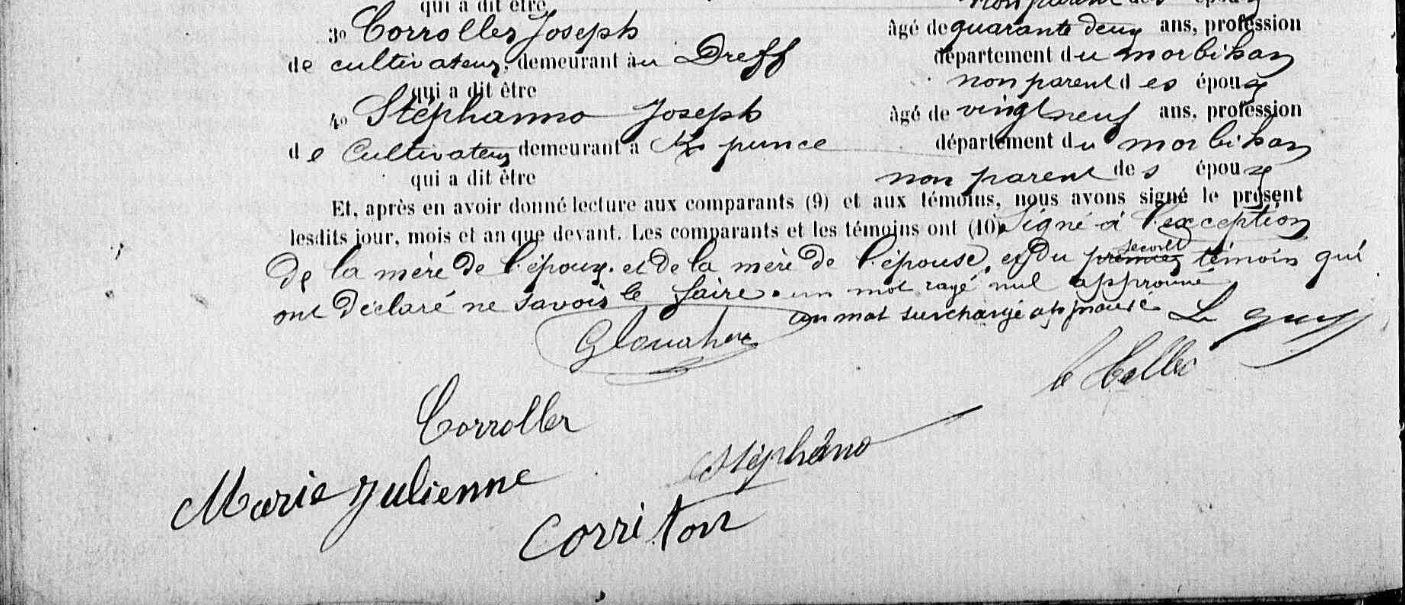 qui a dit être non parent des époux
3o Corroller Joseph âgé de quarante deux ans, profession
de cultivateur, demeurant au Dreff département du morbihan
qui a dit être non parent des époux
4o Stéphanno Joseph âgé de vingt neuf ans, profession
de Cultivateur demeurant à punce département du morbihan
qui a dit être non parent des époux
Et, après en avoir donné lecture aux comparants (9) et aux témoins, nous avons signé le présent
lesdits jour, mois et an que devant. Les comparants et les témoins ont (10) Signé à l'exception
second
de la mère de l'époux et de la mère de l'épouse et du premier témoin qui
ont déclaré ne savoir le faire. un mot rayé nul approuvé
un mot surchargé approuvé
Corroller
Stéphano
Marie Julienne
Corriton